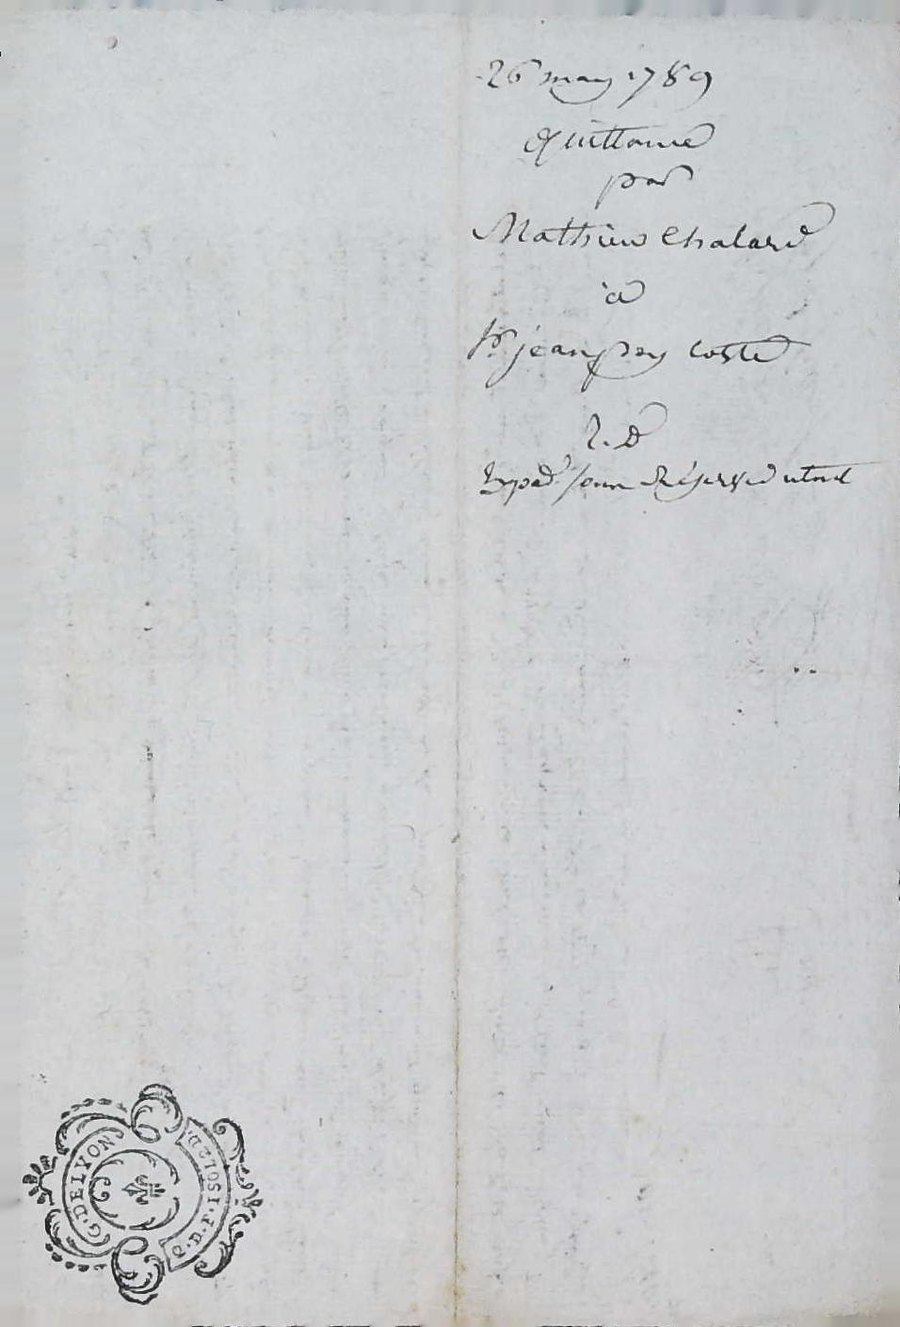 26 may 1789
Quittance
par
Mathieu Chalard
à
Sr. jean pey coste
2. D
G. DE LYON
Q. D. F. 1 SOL 2 D.